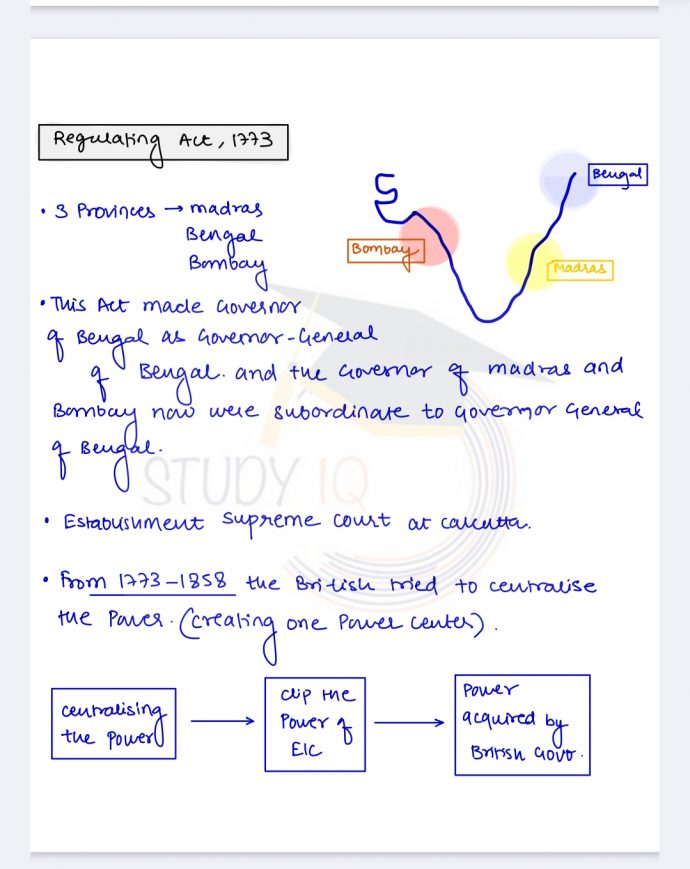 Regulating Act, 1773
• 3 Provinces → madras
Bengal
Bombay
Bengal
Bombay
Madras
• This Act made Governor
of Bengal as Governor-General
of Bengal. and the Governor of madras and
Bombay now were subordinate to Governor General
of Bengal.
STUDY IQ
• Establishment Supreme court at calcutta.
• From 1773-1858 the British tried to centralise
the Power. (creating one Power center).
centralising
the Power
→
clip the
Power of
EIC
→
Power
acquired by
British Govt.